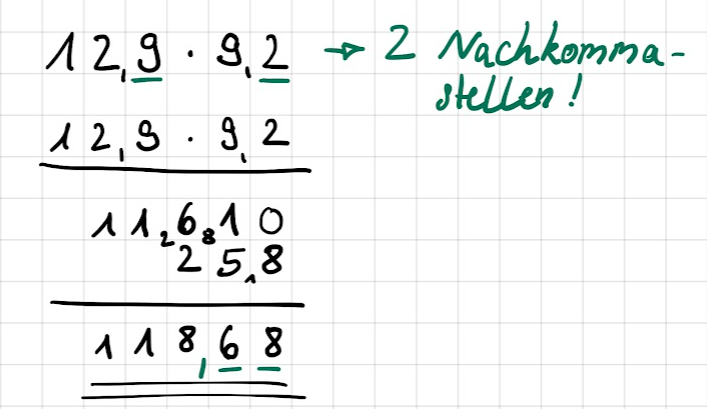 12,9 · 9,2 → 2 Nachkomma-
stellen!
12,9 · 9,2
11₂6₈10
25₁8
118,68